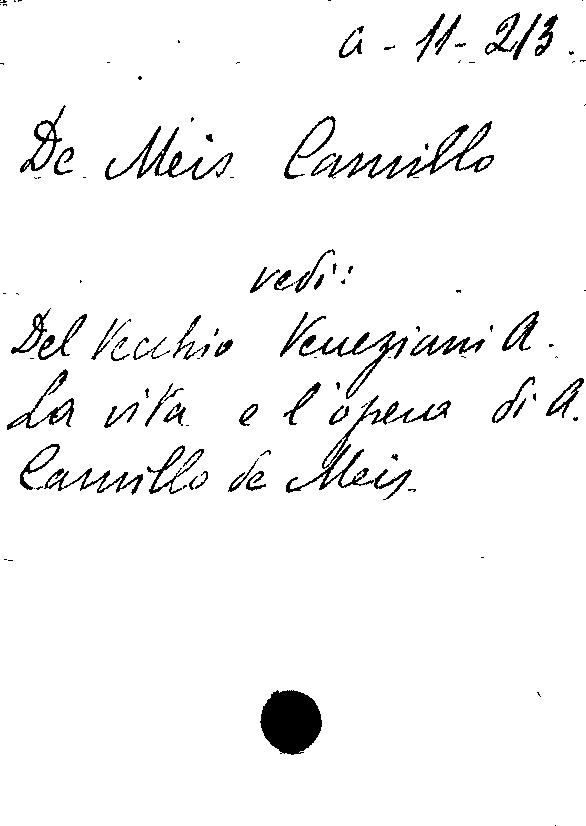 a-11-213.
De Meis Camillo
vedi:
Del Vecchio Veneziani A.
La vita e l'opera di A.
Camillo de Meis.